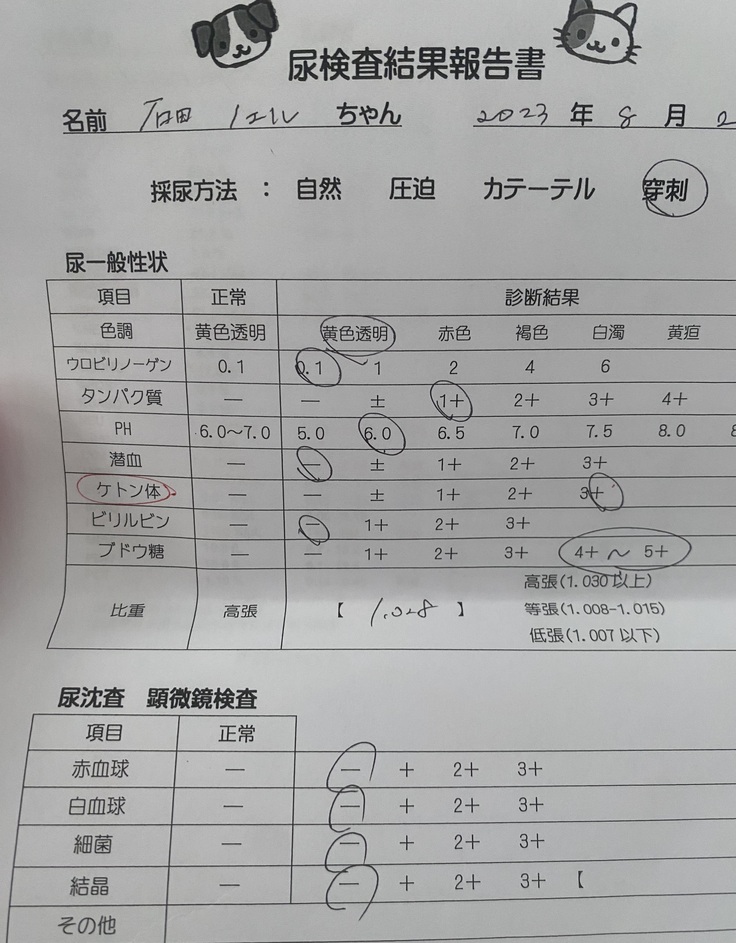 尿検査結果報告書
名前 石田 ノエル ちゃん 2023 年 8 月 2
採尿方法 : 自然 圧迫 カテーテル 穿刺
尿一般性状
項目 正常 診断結果
色調 黄色透明 黄色透明 赤色 褐色 白濁 黄疸
ウロビリノーゲン 0.1 0.1 1 2 4 6
タンパク質 — — ± 1+ 2+ 3+ 4+
PH 6.0〜7.0 5.0 6.0 6.5 7.0 7.5 8.0 8
潜血 — — ± 1+ 2+ 3+
ケトン体 — — ± 1+ 2+ 3+
ビリルビン — — 1+ 2+ 3+
ブドウ糖 — — 1+ 2+ 3+ 4+ 〜 5+
高張(1.030以上)
比重 高張 【 1.028 】 等張(1.008-1.015)
低張(1.007以下)
尿沈査 顕微鏡検査
項目 正常
赤血球 — — + 2+ 3+
白血球 — — + 2+ 3+
細菌 — — + 2+ 3+
結晶 — — + 2+ 3+ 【
その他